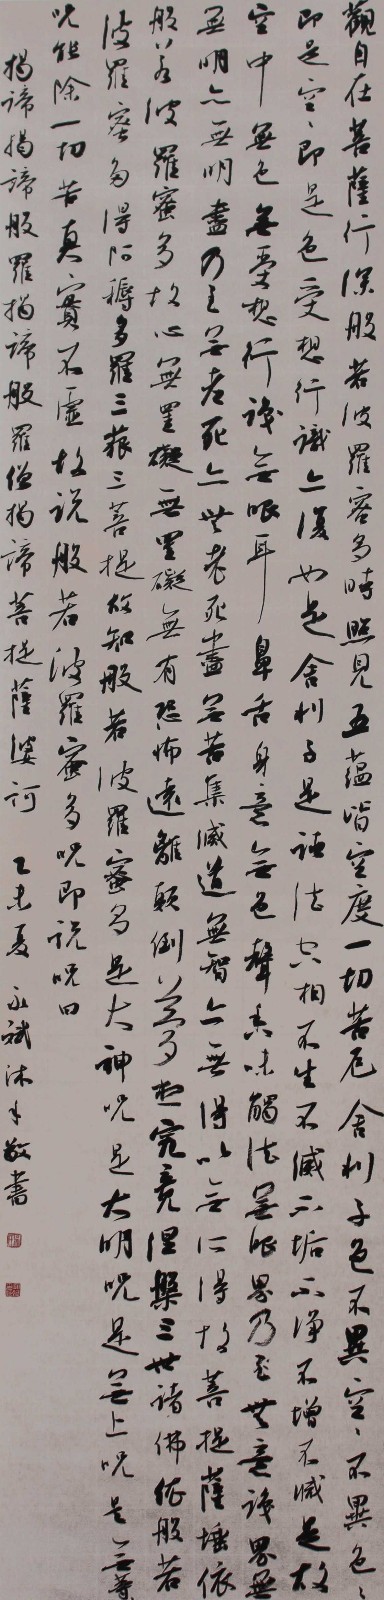 觀自在菩薩行深般若波羅蜜多時照見五蘊皆空度一切苦厄舍利子色不異空々不異色々
即是空々即是色受想行識亦復如是舍利子是諸法空相不生不滅不垢不淨不增不減是故
空中無色無受想行識無眼耳鼻舌身意無色聲香味觸法無眼界乃至無意識界無
無明亦無明盡乃至無老死亦無老死盡無苦集滅道無智亦無得以無所得故菩提薩埵依
般若波羅蜜多故心無罣礙無罣礙故無有恐怖遠離顛倒夢想究竟涅槃三世諸佛依般若
波羅蜜多得阿耨多羅三藐三菩提故知般若波羅蜜多是大神咒是大明咒是無上咒是無等
咒能除一切苦真實不虛故說般若波羅蜜多咒即說咒曰
揭諦揭諦般羅揭諦般羅僧揭諦菩提薩婆訶 乙未夏 永斌沐手敬書